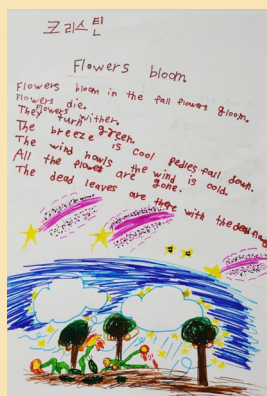 크리스틴
Flowers bloom
Flowers bloom in the fall flowers gloom.
Flowers die.
They wither.
turn green.
The breeze is cool pedles fall down.
The wind howls the wind is cold.
All the flower are gone.
The dead leaves are there with the dead